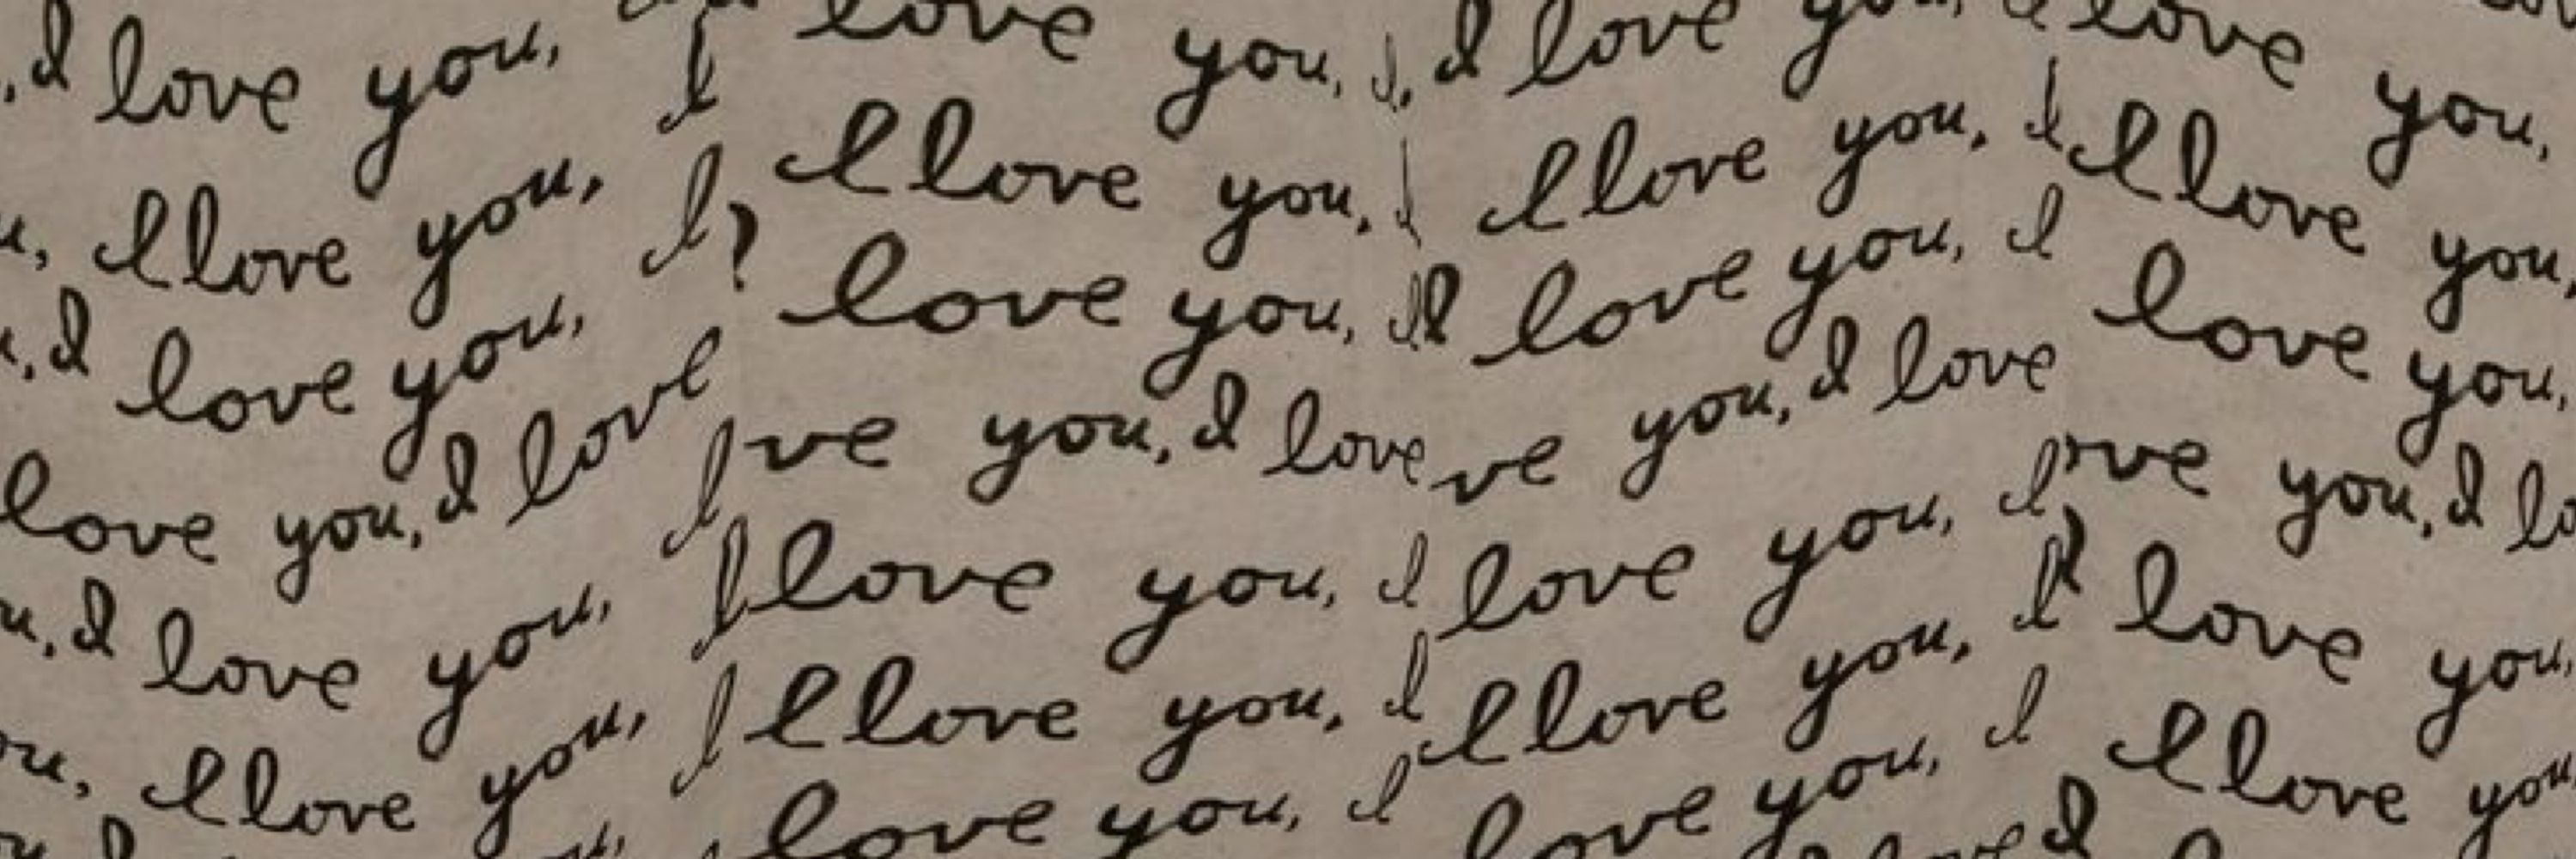 , I love you, love you, I love you, I love you,
I love you, I love you, I love you, I love you,
I love you, I love you, I love you, I love you,
love you, I love ve you, I love ve you, I love ve you, I
I love you, I love you, I love you, I love you,
I love you, I love you, I love you, I love you
love you, I love you, I